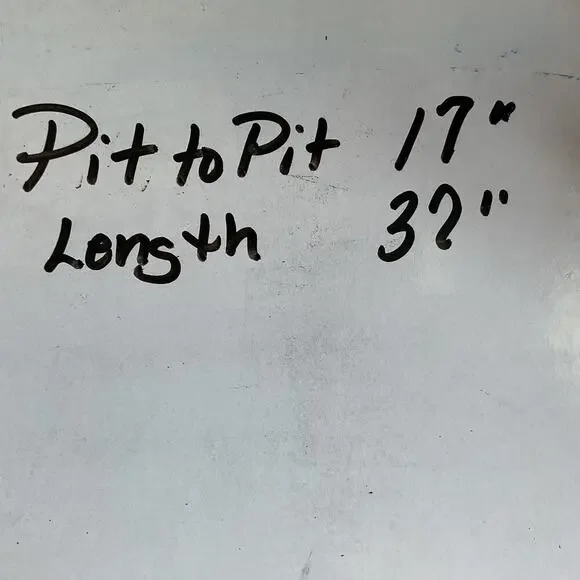 Pit to Pit 17"
Length 37"